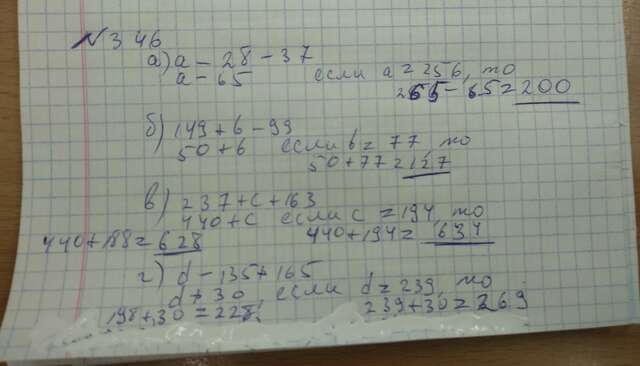 №346
а) a - 28 - 37
a - 65 если a = 256, то
265 - 65 = 200
б) 149 + b - 99
50 + b если b = 77, то
50 + 77 = 127
в) 237 + c + 163
440 + c если c = 194, то
440 + 188 = 628 440 + 194 = 634
г) d - 135 + 165
d + 30, если d = 239, то
198 + 30 = 228. 239 + 30 = 269